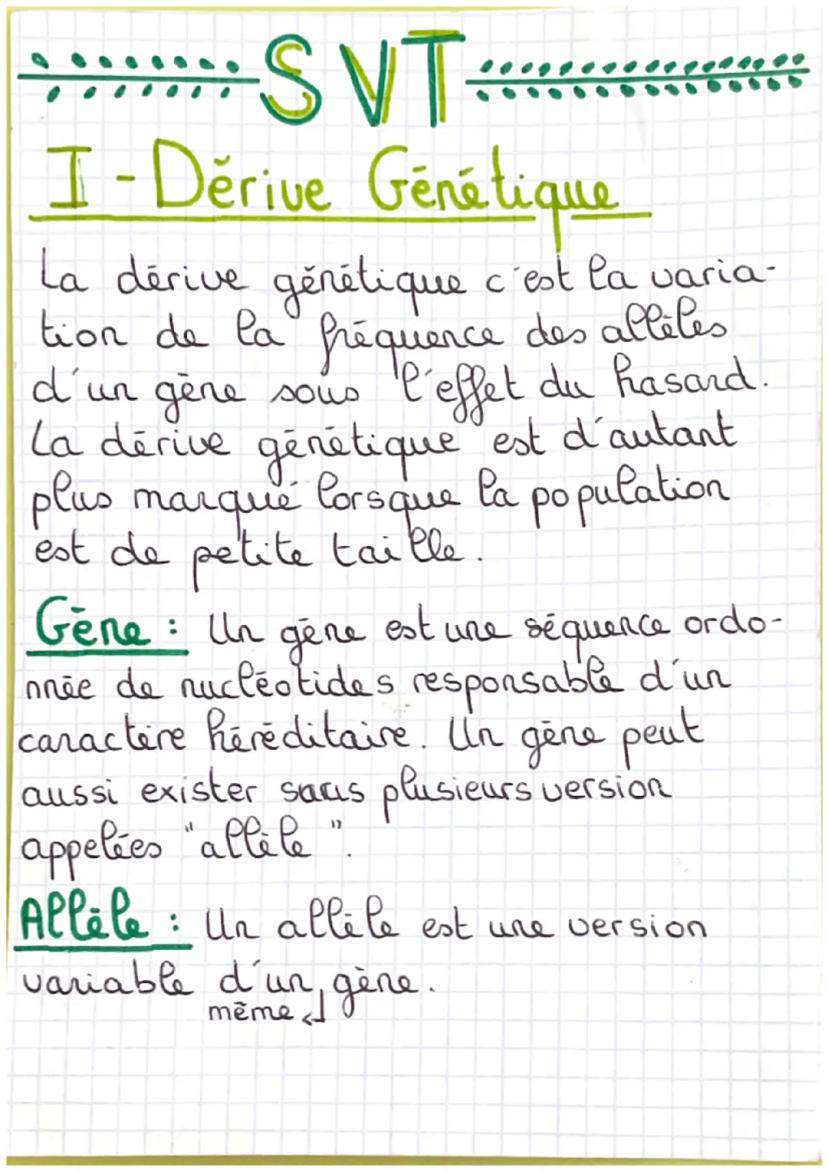 SVT
I - Dérive Génétique
La dérive génétique c'est la varia-
tion de la fréquence des allèles
d'un gène sous l'effet du hasard.
La dérive génétique est d'autant
plus marqué lorsque la population
est de petite taille.
Gène : Un gène est une séquence ordo-
nnée de nucléotides responsable d'un
caractère héréditaire. Un gène peut
aussi exister sous plusieurs version
appelées "allèle".
Allèle : Un allèle est une version
variable d'un gène.
même